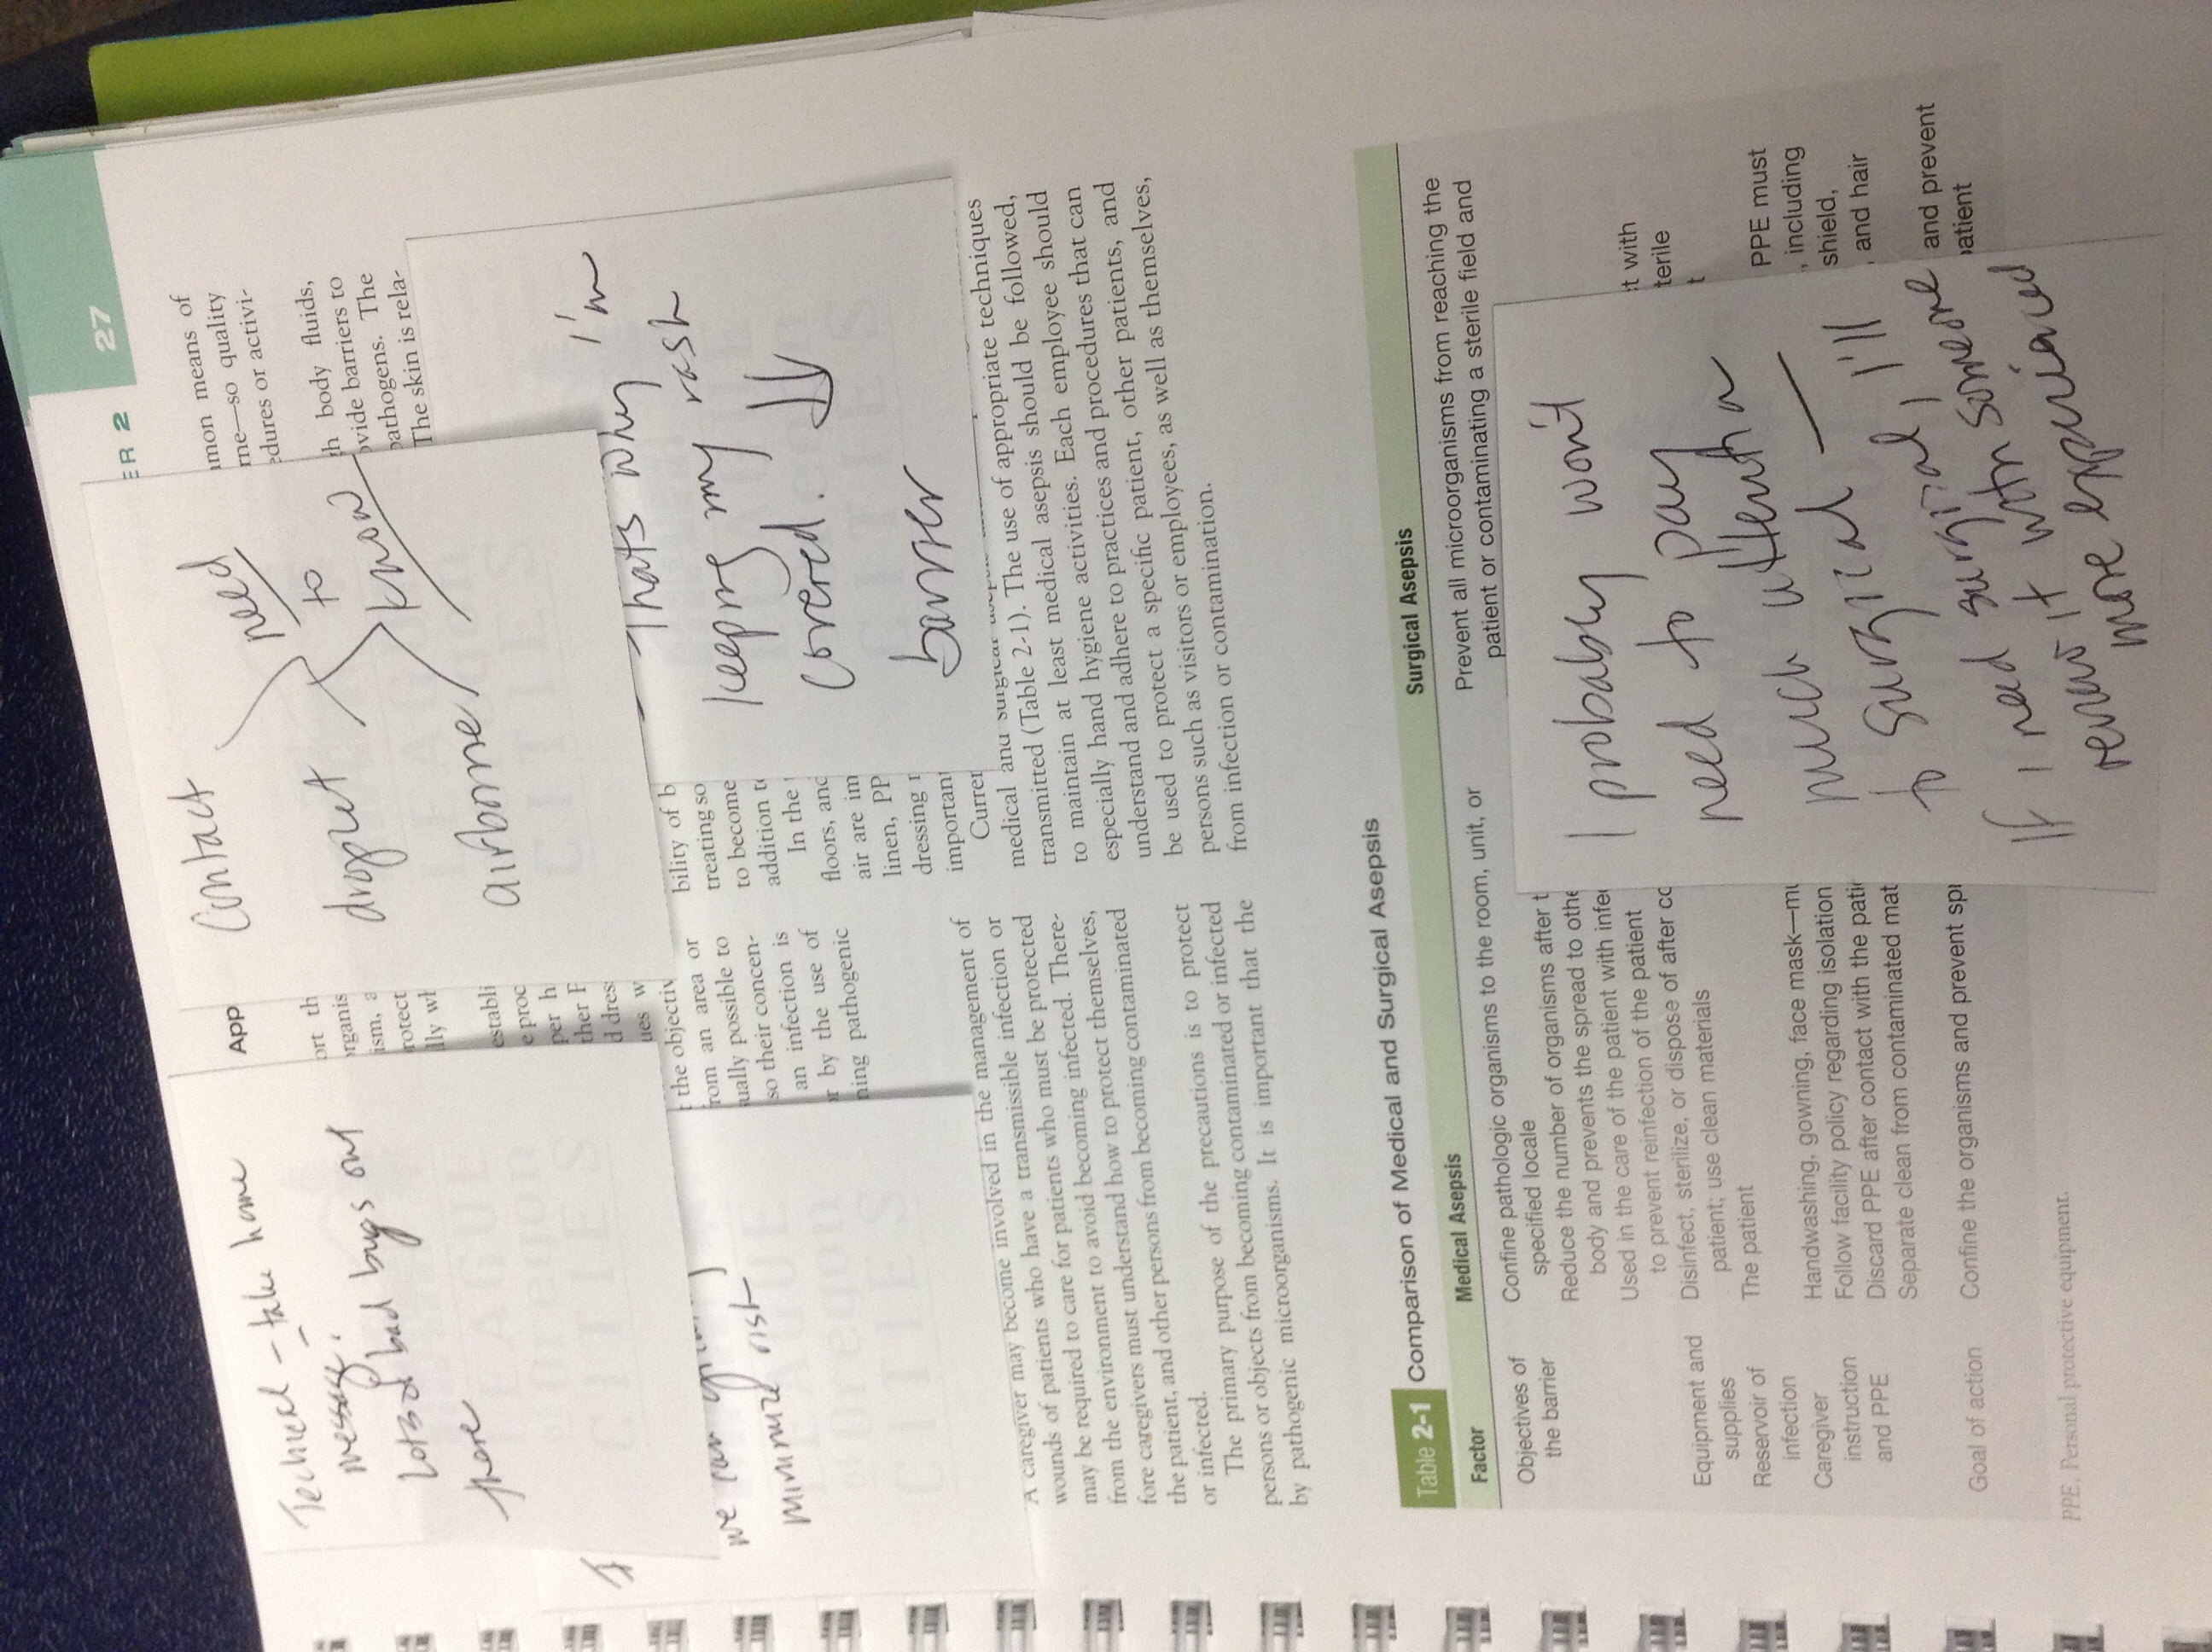 ER 2 27
App
Technical - take home
message.
Lots of bad bugs out
there
we can
minimize risk
Contact
droplet
airborne
need
to
know
ort th
organis
ism, a
rotect
lly wh
establi
e proc
per h
ther P
d dres
ues w
the objectiv
rom an area or
ually possible to
so their concen-
an infection is
r by the use of
ning pathogenic
A caregiver may become involved in the management of
wounds of patients who have a transmissible infection or
may be required to care for patients who must be protected
from the environment to avoid becoming infected. There-
fore caregivers must understand how to protect themselves,
the patient, and other persons from becoming contaminated
or infected.
The primary purpose of the precautions is to protect
persons or objects from becoming contaminated or infected
by pathogenic microorganisms. It is important that the
mon means of
rne—so quality
edures or activi-
h body fluids,
vide barriers to
pathogens. The
The skin is rela-
Thats why I'm
keeping my rash
covered.
barrier
bility of b
treating so
to become
addition t
In the
floors, and
air are im
linen, PP
dressing
important
Curren
medical and surgical
techniques
transmitted (Table 2-1). The use of appropriate techniques
to maintain at least medical asepsis should be followed,
especially hand hygiene activities. Each employee should
understand and adhere to practices and procedures that can
be used to protect a specific patient, other patients, and
persons such as visitors or employees, as well as themselves,
from infection or contamination.
Table 2-1 Comparison of Medical and Surgical Asepsis
Factor Medical Asepsis Surgical Asepsis
Objectives of
the barrier
Confine pathologic organisms to the room, unit, or
specified locale
Reduce the number of organisms after t
body and prevents the spread to othe
Used in the care of the patient with infe
to prevent reinfection of the patient
Prevent all microorganisms from reaching the
patient or contaminating a sterile field and
t with
terile
t
Equipment and
supplies
Disinfect, sterilize, or dispose of after co
patient; use clean materials
Reservoir of
infection
The patient
Caregiver
instruction
and PPE
Handwashing, gowning, face mask—mu
Follow facility policy regarding isolation
Discard PPE after contact with the patie
Separate clean from contaminated mat
PPE must
, including
shield,
, and hair
Goal of action
Confine the organisms and prevent spr
and prevent
patient
I probably won't
need to pay
much attention
to surgical — I'll
If I need surgical, I
review it with someone
more experienced
PPE, Personal protective equipment.